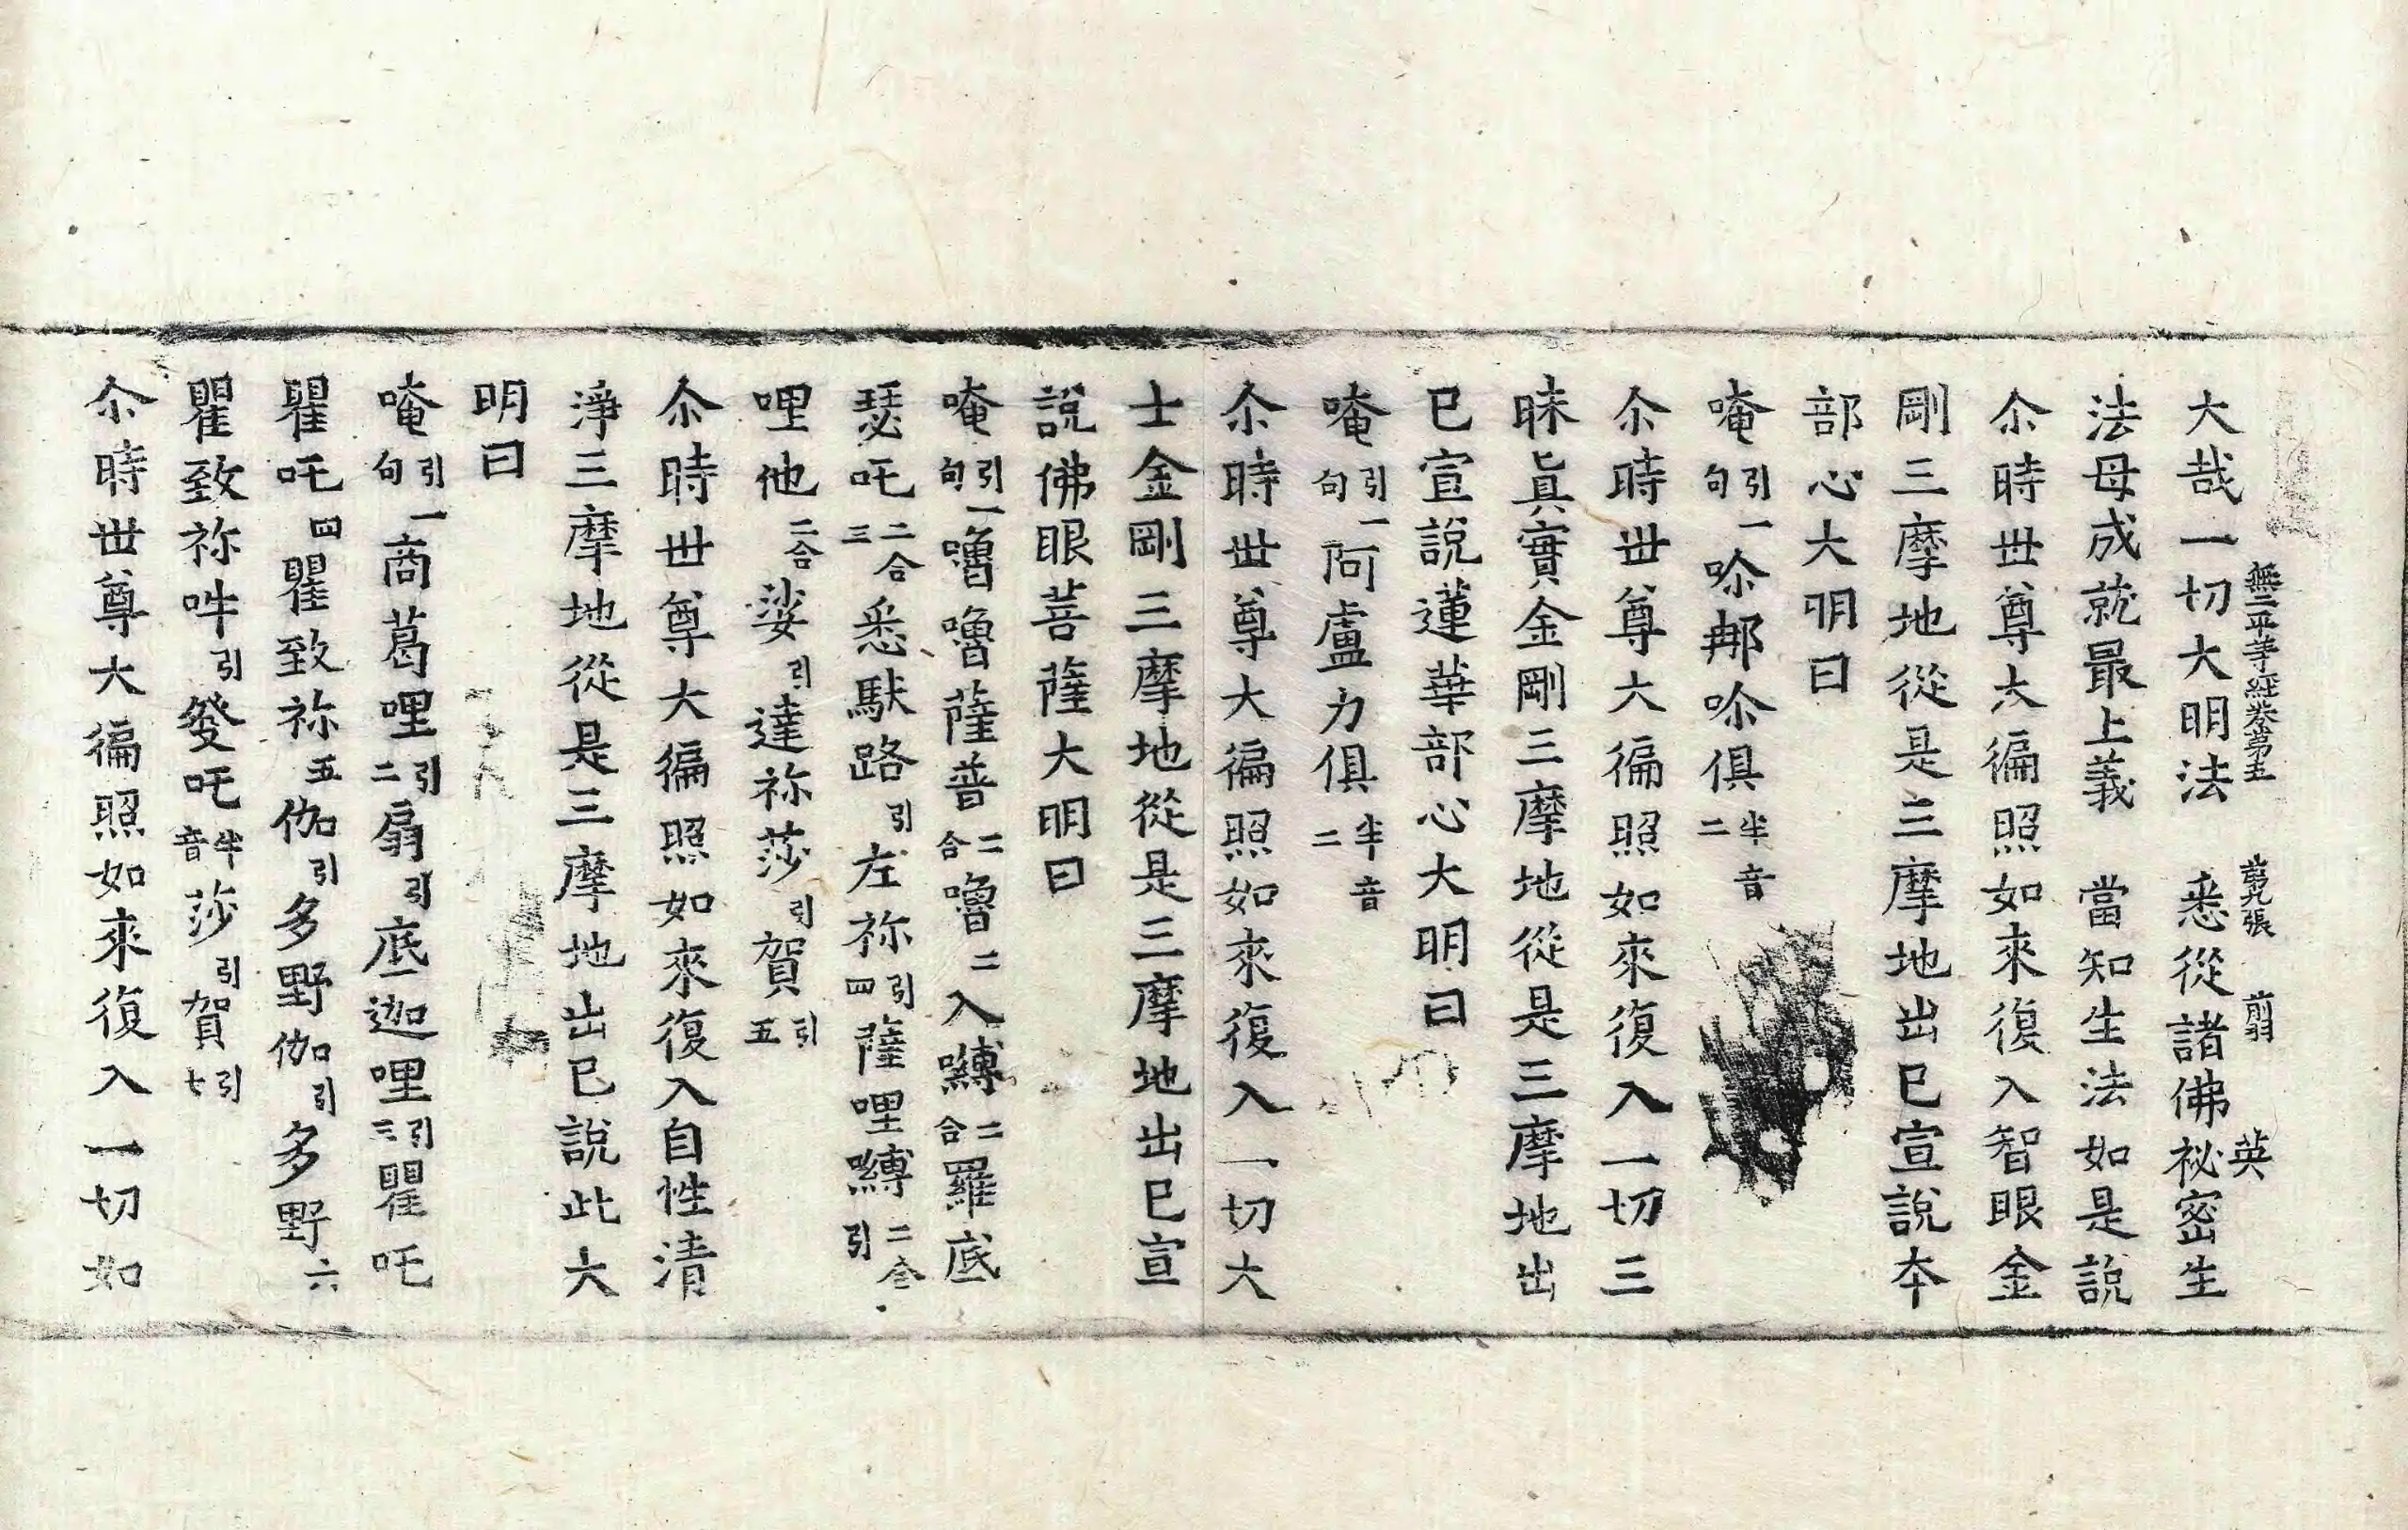 無二平等經卷第五 第九張 前 英
大哉一切大明法 悉從諸佛祕密生
法母成就最上義 當知生法如是說
尒時世尊大徧照如來復入智眼金
剛三摩地從是三摩地出已宣說本
部心大明曰
唵引一句㖿那㖿俱半音二
尒時世尊大徧照如來復入一切三
昧眞實金剛三摩地從是三摩地出
已宣說蓮華部心大明曰
唵引一句阿盧力俱半音二
尒時世尊大徧照如來復入一切大
士金剛三摩地從是三摩地出已宣
說佛眼菩薩大明曰
唵引一句嚕嚕薩普二合嚕二入嚩二合羅底
瑟吒二合三悉馱路引左祢引四薩哩嚩二合引
哩他二合娑引達祢莎引賀引五
尒時世尊大徧照如來復入自性清
淨三摩地從是三摩地出已說此大
明曰
唵引一句商葛哩引二扇引底迦哩引三瞿吒
瞿吒四瞿致祢五伽引多野伽引多野六
瞿致祢吽引發吒半音莎引賀引七
尒時世尊大徧照如來復入一切如